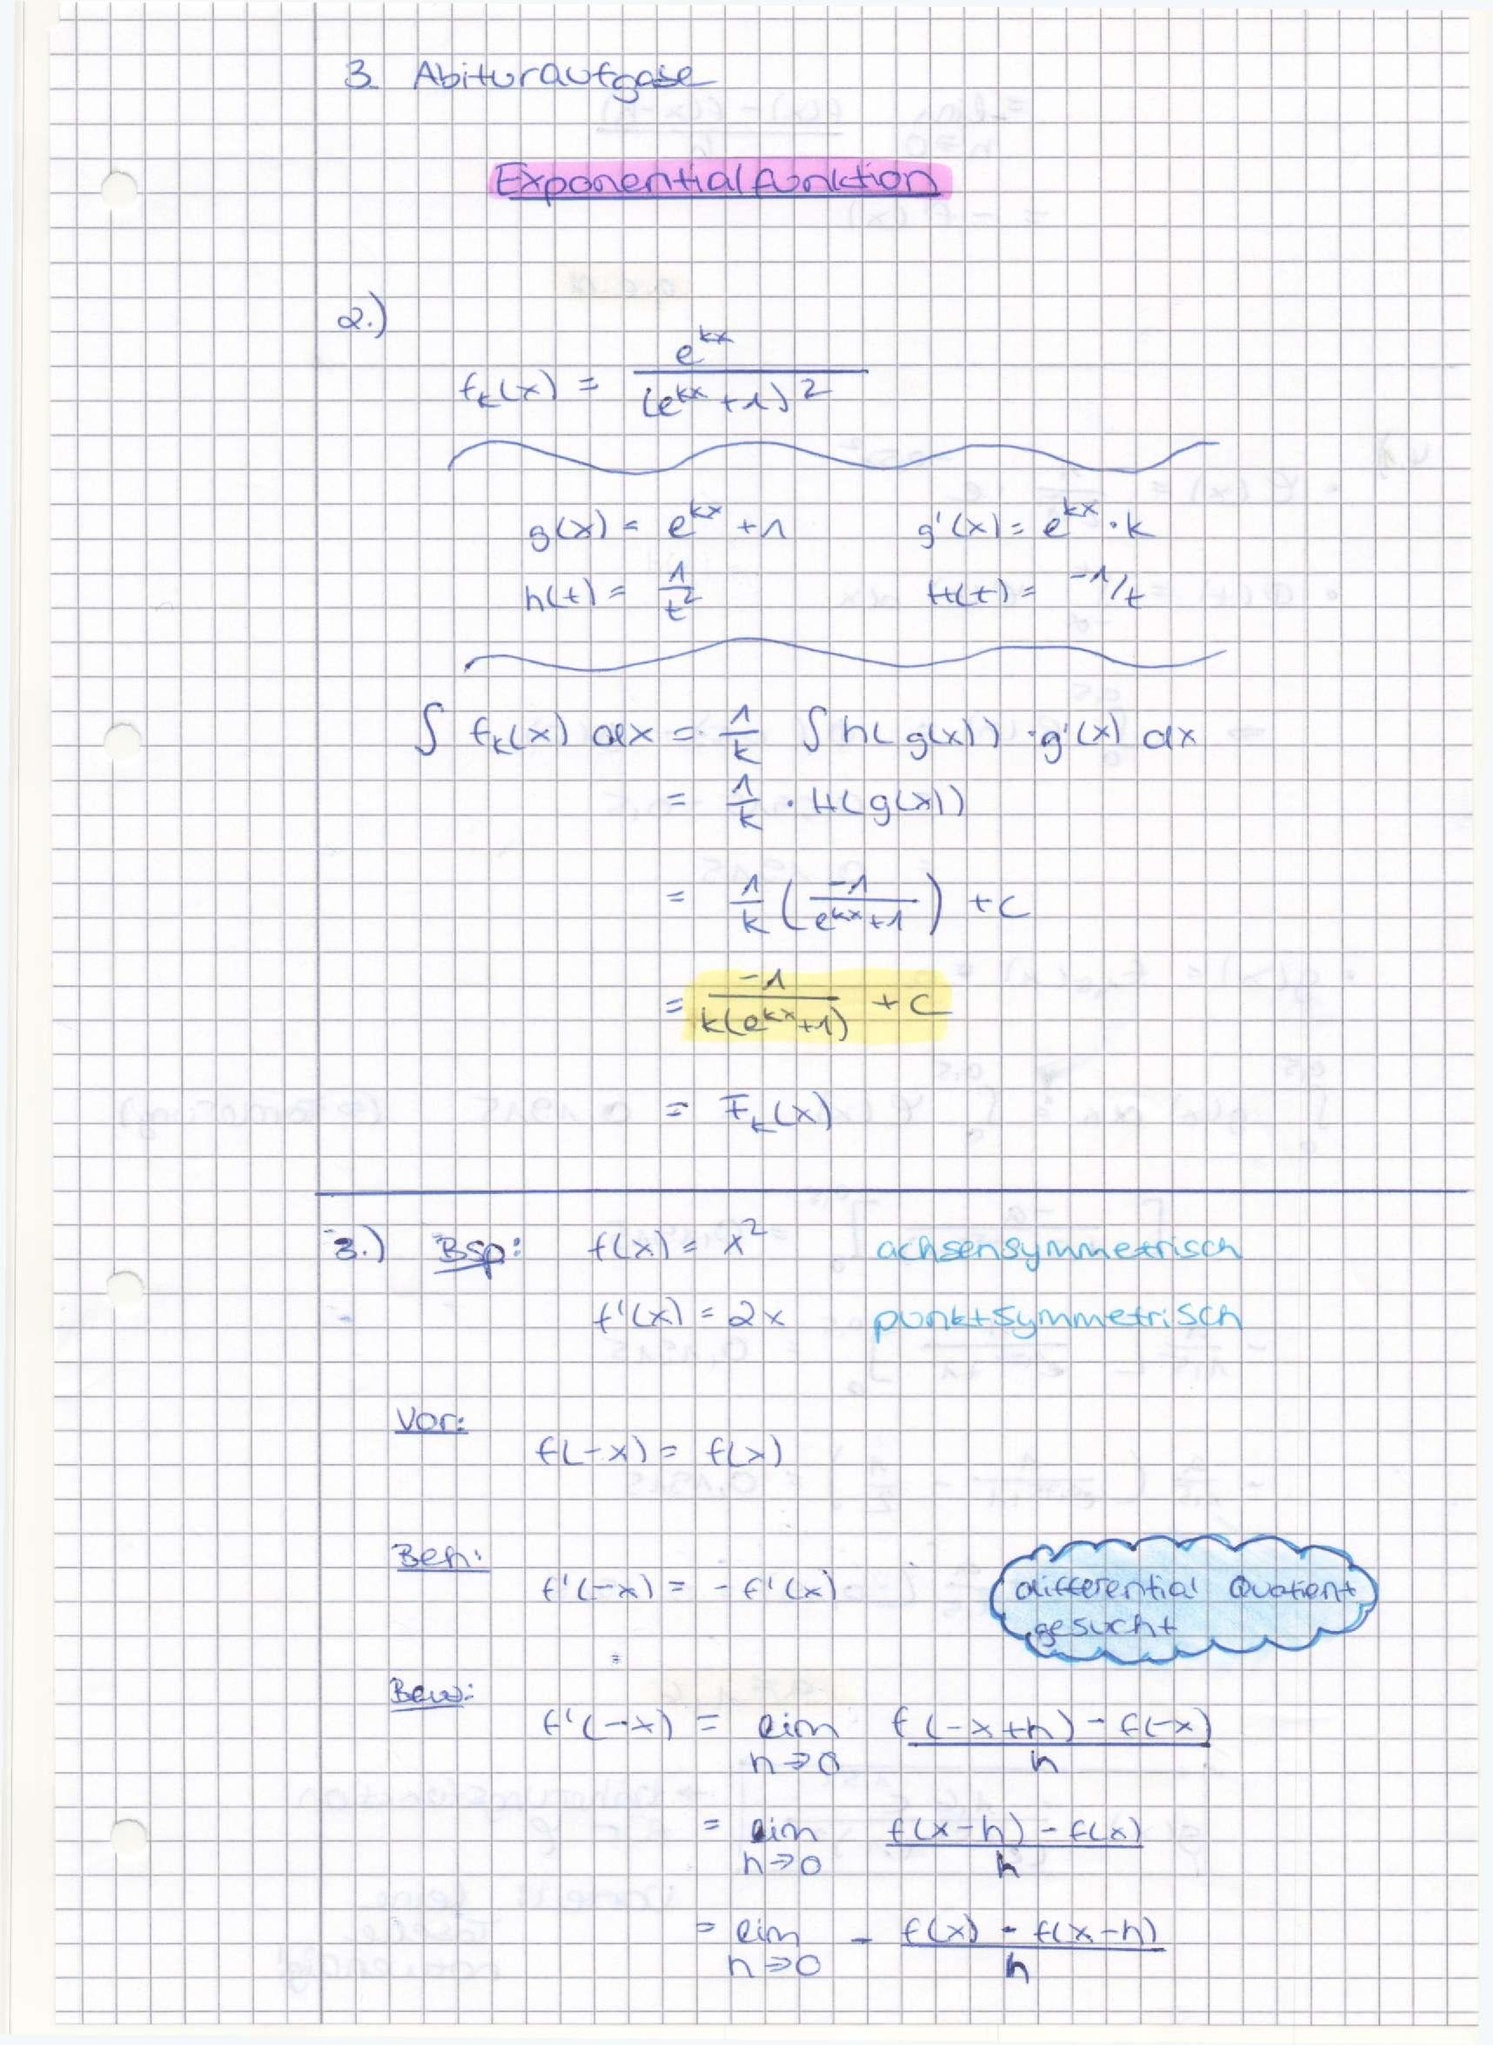 3. Abituraufgabe
Exponentialfunktion
2.)
f_k(x) = e^{kx} / (e^{kx} + 1)^2
g(x) = e^{kx} + 1    g'(x) = e^{kx} · k
h(t) = 1/t^2    H(t) = -1/t
∫ f_k(x) dx = 1/k ∫ h(g(x)) · g'(x) dx
= 1/k · H(g(x))
= 1/k (-1/(e^{kx}+1)) + c
= -1/(k(e^{kx}+1)) + c
= F_k(x)
3.) Bsp: f(x) = x^2    achsensymmetrisch
f'(x) = 2x    punktsymmetrisch
Vor:
f(-x) = f(x)
Beh:
f'(-x) = -f'(x)
differential Quotient
gesucht
Bew:
f'(-x) = lim h→0 (f(-x+h) - f(-x))/h
= lim h→0 (f(x-h) - f(x))/h
= lim h→0 - (f(x) - f(x-h))/h